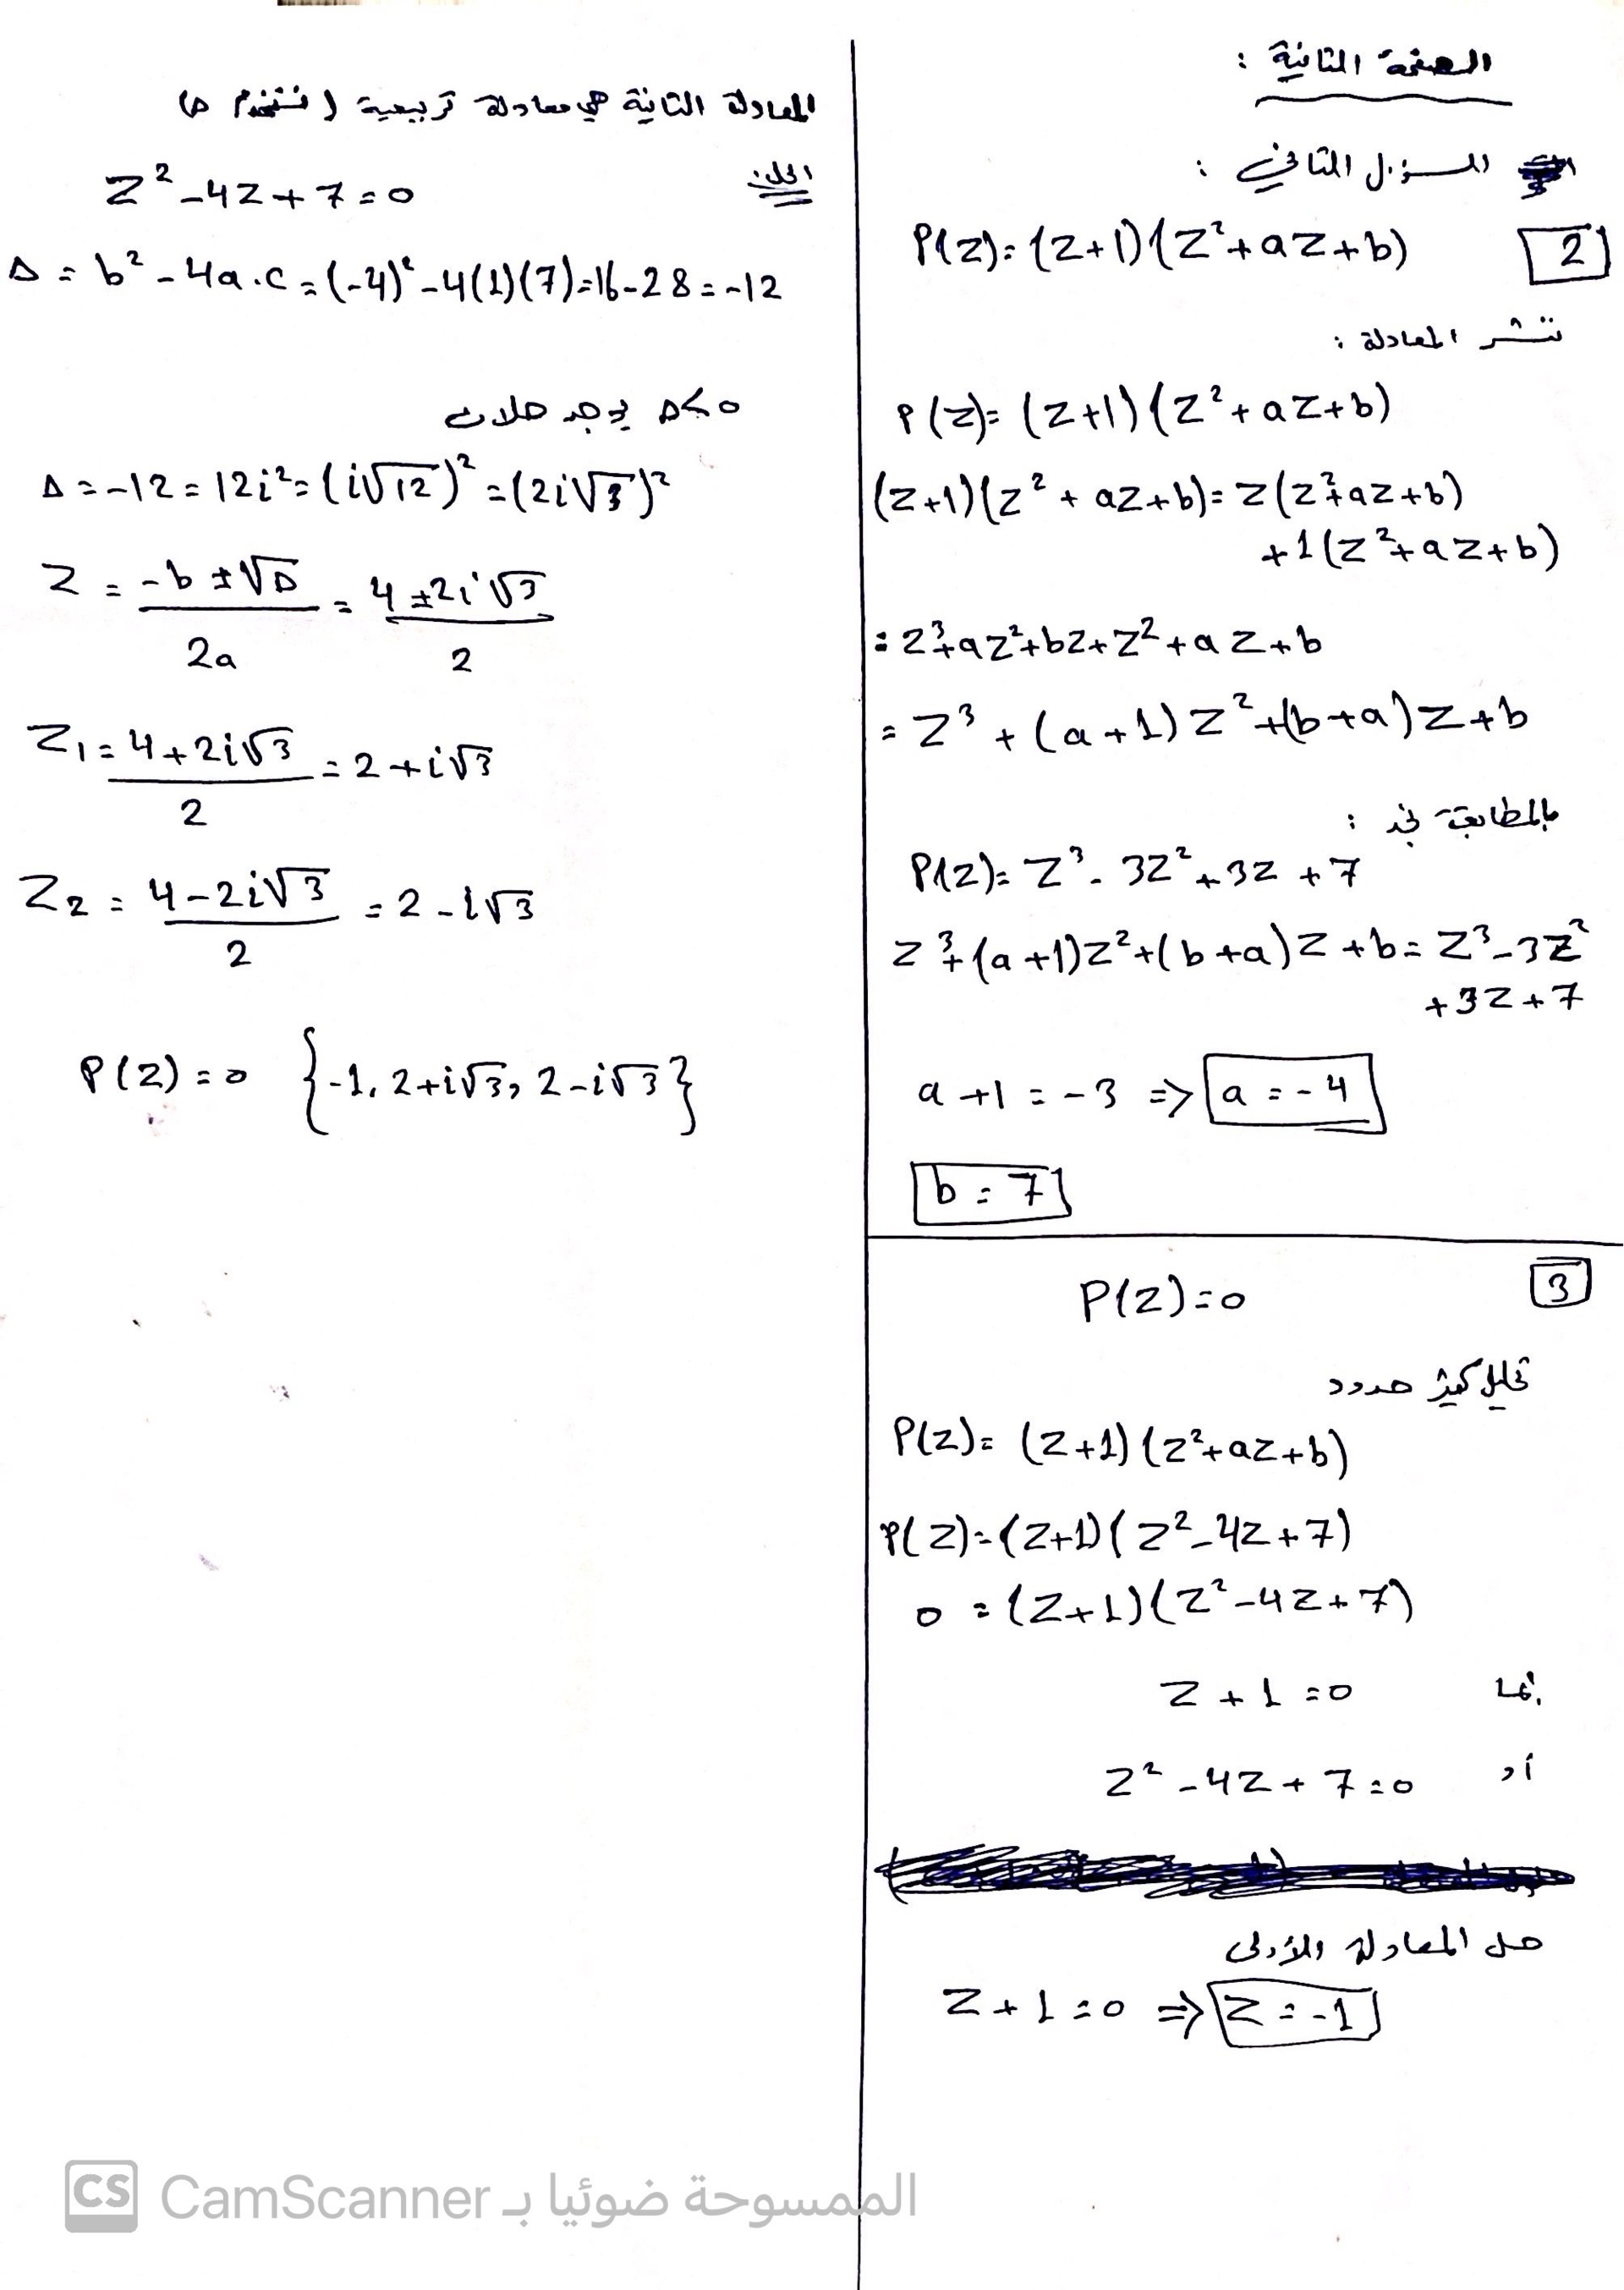 الصفحة الثانية :
السؤال الثاني :
2
P(z)= (z+1)(z²+az+b)
ننشر المعادلة :
P(z)= (z+1)(z²+az+b)
(z+1)(z²+az+b)= z(z²+az+b)
+1(z²+az+b)
= z³+az²+bz+z²+az+b
= z³+(a+1)z²+(b+a)z+b
بالمطابقة نجد :
P(z)= z³-3z²+3z+7
z³+(a+1)z²+(b+a)z+b= z³-3z²
+3z+7
a+1=-3 => a=-4
b=7
3
P(z)=0
تحليل كثير حدود
P(z)= (z+1)(z²+az+b)
P(z)=(z+1)(z²-4z+7)
0 =(z+1)(z²-4z+7)
إما z+1=0
أو z²-4z+7=0
حل المعادلة الأولى
z+1=0 => z=-1
المعادلة الثانية هي معادلة تربيعية (نستخدم Δ)
z²-4z+7=0
Δ = b²-4a.c=(-4)²-4(1)(7)=16-28=-12
Δ<0 يوجد حلان
Δ=-12=12i²=(i√12)²=(2i√3)²
z = -b±√Δ / 2a = 4±2i√3 / 2
z₁= 4+2i√3 / 2 = 2+i√3
z₂= 4-2i√3 / 2 = 2-i√3
P(z)=0 {-1, 2+i√3, 2-i√3}
CS CamScanner الممسوحة ضوئيا بـ